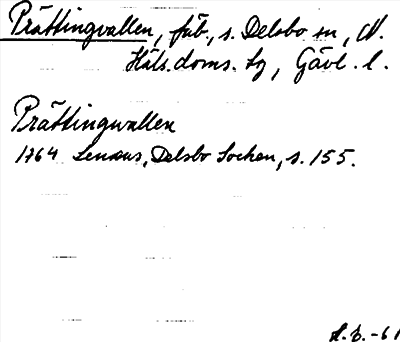 Prättingvallen, fäb., s. Delsbo sn, N.
Häls. doms. tg, Gävl. l.
Prättingwallen
1764 Lenæus, Delsbo Socken, s. 155.